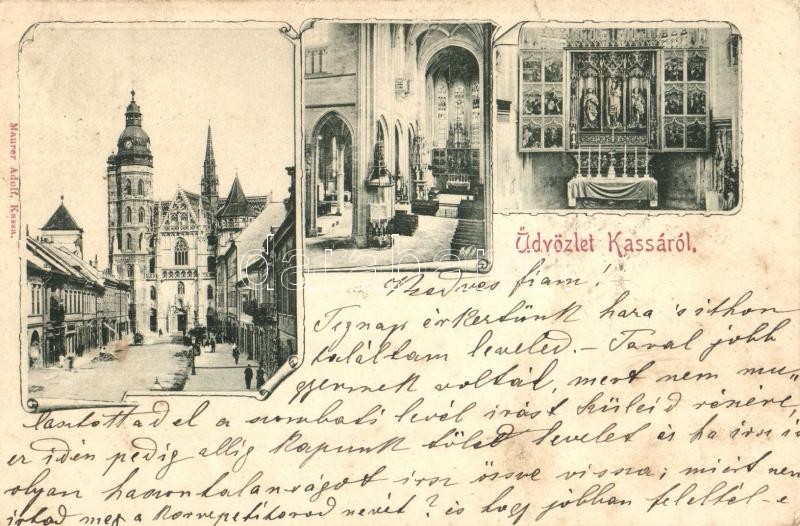 Maurer Adolf, Kassa.
Üdvözlet Kassáról.
Kedves fiam!
Tegnap érkeztünk haza s itthon
találtam leveled. – Taval jobb
gyermek voltál, mert nem mu-
lasztottad el a szombati levél irást szüleid részére,
az idén pedig allig kapunk tőled levelet és ha irsz is
olyan haszontalanságot irsz össve vissza; miért nem
irtad meg a korrepetitorod nevét? és hogy jobban feleltél-e
darabanth